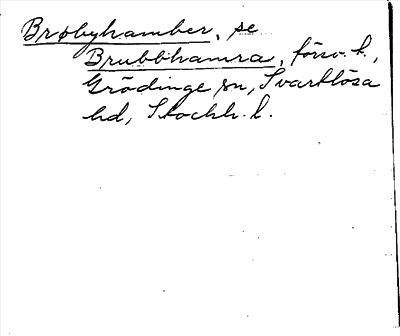 Brøbyhamber, se
Brubbhamra, försv. t.,
Grödinge sn, Svartlösa
hd, Stockh. l.